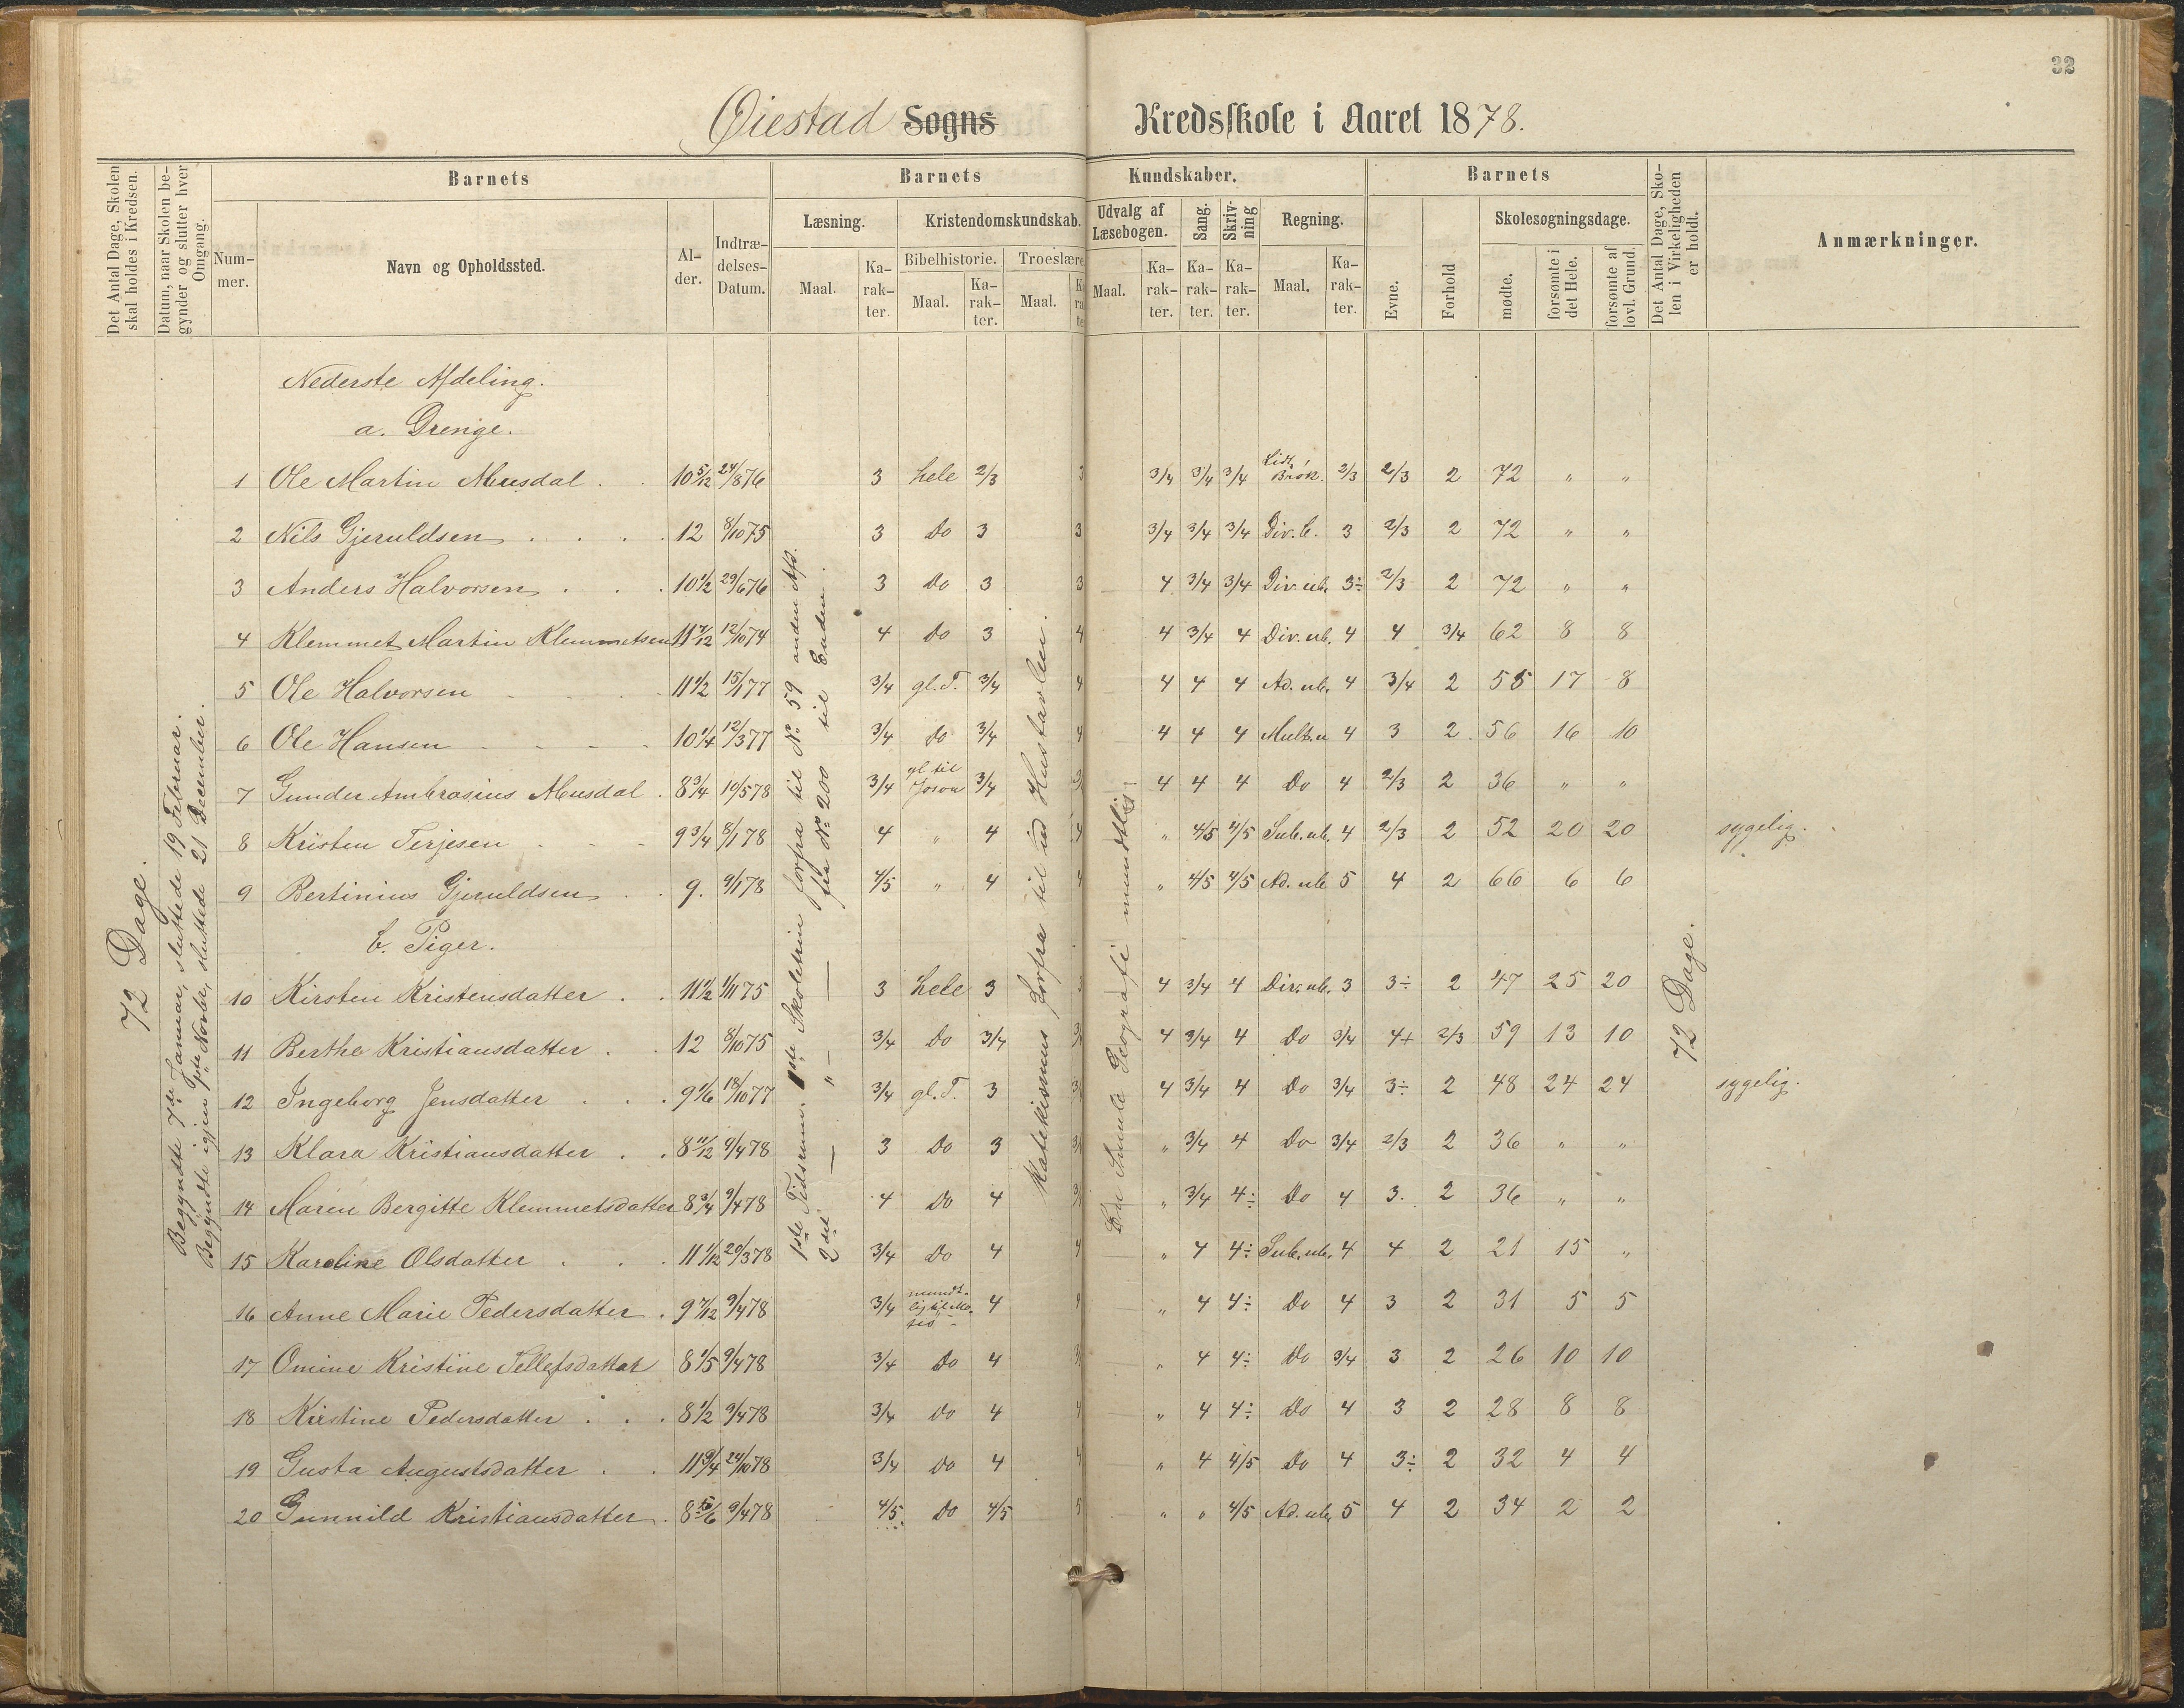 32
Øiestad Sogns Kredsskole i Aaret 1878.
Det Antal Dage, Skolen skal holdes i Kredsen.
Datum, naar Skolen begynder og slutter hver Omgang.
Barnets
Nummer.
Navn og Opholdssted.
Alder.
Indtrædelses-Datum.
Barnets Kundskaber.
Læsning.
Maal.
Karakter.
Kristendomskundskab.
Bibelhistorie.
Maal.
Karakter.
Troeslære
Maal.
Udvalg af Læsebogen.
Maal.
Karakter.
Sang.
Karakter.
Skrivning
Karakter.
Regning.
Maal.
Karakter.
Barnets
Evne.
Forhold
Skolesøgningsdage.
mødte.
forsømte i det Hele.
forsømte af lovl. Grund.
Det Antal Dage, Skolen i Virkeligheden er holdt.
Anmærkninger.
72 Dage.
Begyndte 7de Januar, sluttede 19 Februar.
Begyndte igjen 1ste Novbr, sluttede 21 December.
1ste Tidsrum 1ste Skoletrin forfra til No 59 anden Afd.
2det — " — fra No 200 til Enden.
Katekismus forfra til ud Hustavlen.
Geografi mundtlig.
72 Dage.
Nederste Afdeling.
a. Drenge.
1 Ole Martin Musdal . . 10 5/12 24/8 76 3 hele 2/3 3 3/4 3/4 3/4 Lidt Brøk. 2/3 2/3 2 72 " "
2 Nils Gjeruldsen . . . . 12 8/10 75 3 Do 3 3 3/4 3/4 3/4 Div. b. 3 2/3 2 72 " "
3 Anders Halvorsen . . . 10 1/2 29/6 76 3 Do 3 3 4 3/4 3/4 Div. ub. 3÷ 2/3 2 72 " "
4 Klemmet Martin Klemmetsen 11 7/12 12/10 74 4 Do 3 4 4 3/4 4 Div. ub. 4 4 3/4 62 8 8
5 Ole Halvorsen 11 1/2 15/1 77 3/4 gl. T. 3/4 4 4 4 4 Ad. ub. 4 3/4 2 55 17 8
6 Ole Hansen 10 1/4 12/3 77 3/4 Do 3/4 4 4 4 4 Mult. u 4 3 2 56 16 10
7 Gunder Ambrosius Musdal . 8 3/4 10/5 78 3/4 gl til Josva 3/4 4 4 4 Do 4 2/3 2 36 " "
8 Kristen Terjesen 9 3/4 8/1 78 4 " 4 4 " 4/5 4/5 Sub. ub. 4 2/3 2 52 20 20 sygelig.
9 Bertinius Gjeruldsen . . 9. 9/1 78 4/5 " 4 4 " 4/5 4/5 Ad. ub 5 4 2 66 6 6
b. Piger.
10 Kirsten Kristensdatter . . 11 1/2 1/11 75 3 hele 3 3 4 3/4 4 Div. ub. 3 3÷ 2 47 25 20
11 Berthe Kristiansdatter . . 12 8/10 75 3/4 Do 3/4 4 3/4 4 Do 3/4 4+ 2/3 59 13 10
12 Ingeborg Jensdatter . . . 9 1/6 18/10 77 3/4 gl. T. 3 4 3/4 4 Do 3/4 3÷ 2 48 24 24 sygelig.
13 Klara Kristiansdatter . . 8 11/12 9/4 78 3 Do 3 " 3/4 4 Do 3/4 2/3 2 36 " "
14 Maren Bergitte Klemmetsdatter 8 3/4 9/4 78 4 Do 4 " 3/4 4÷ Do 4 3. 2 36 " "
15 Karoline Olsdatter . . . 11 1/12 20/3 78 3/4 Do 4 4 " 4 4÷ Sub. ub. 4 4 2 21 15 "
16 Anne Marie Pedersdatter . 9 7/12 9/4 78 3/4 mundtlig til Moses 4 4 " 4 4÷ Do 4 3 2 31 5 5
17 Omine Kristine Tellefsdatter 8 1/5 9/4 78 3/4 Do 4 " 4 4÷ Do 3/4 3 2 26 10 10
18 Kirstine Pedersdatter . . . 8 1/2 9/4 78 3/4 Do 4 4 " 4 4÷ Do 4 3 2 28 8 8
19 Gusta Augustsdatter . . 11 3/4 24/10 78 3/4 Do 4 4 " 4 4/5 Do 4 3÷ 2 32 4 4
20 Gunnild Kristiansdatter . 8 5/6 9/4 78 4/5 Do 4/5 5 " " 4/5 Ad. ub. 5 4 2 34 2 2